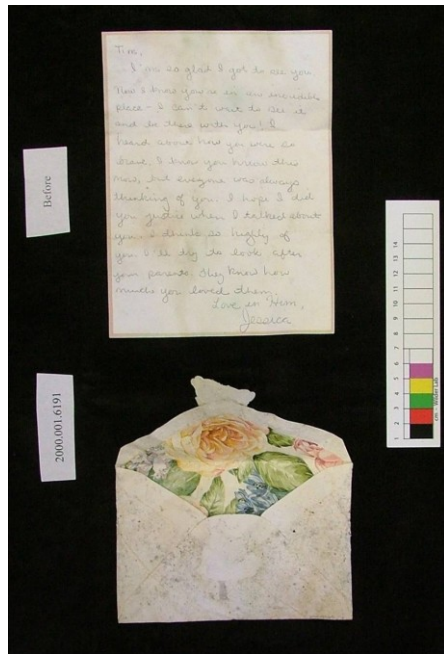 Before
2000.001.6191
Tim,
I'm so glad I got to see you
Now I know you're in an incredible
place - I can't wait to see it
and be there with you! I
heard about how you were so
brave. I know you knew this
now, but everyone was always
thinking of you. I hope I did
you justice when I talked about
you. I think so highly of
you. I'll try to look after
your parents. They know how
much you loved them.
Love in Him,
Jessica
1 2 3 4 5 6 7 8 9 10 11 12 13 14